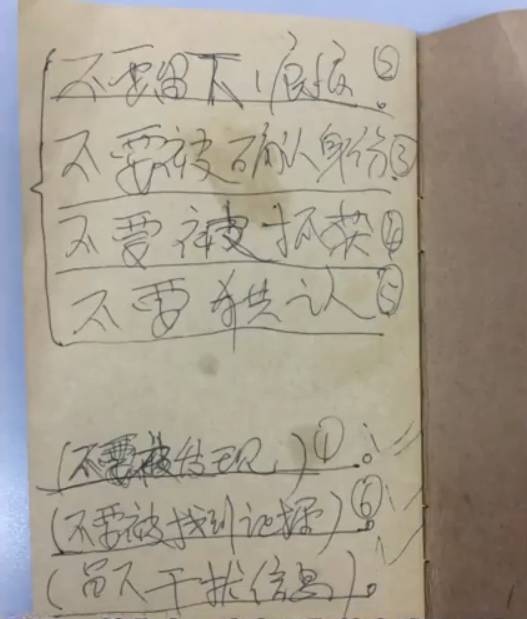 不要留下痕迹②
不要被确认身份③
不要被抓获④
不要供认⑤
(不要被发现)①。
(不要被找到证据)⑥。
(留下干扰信息)。